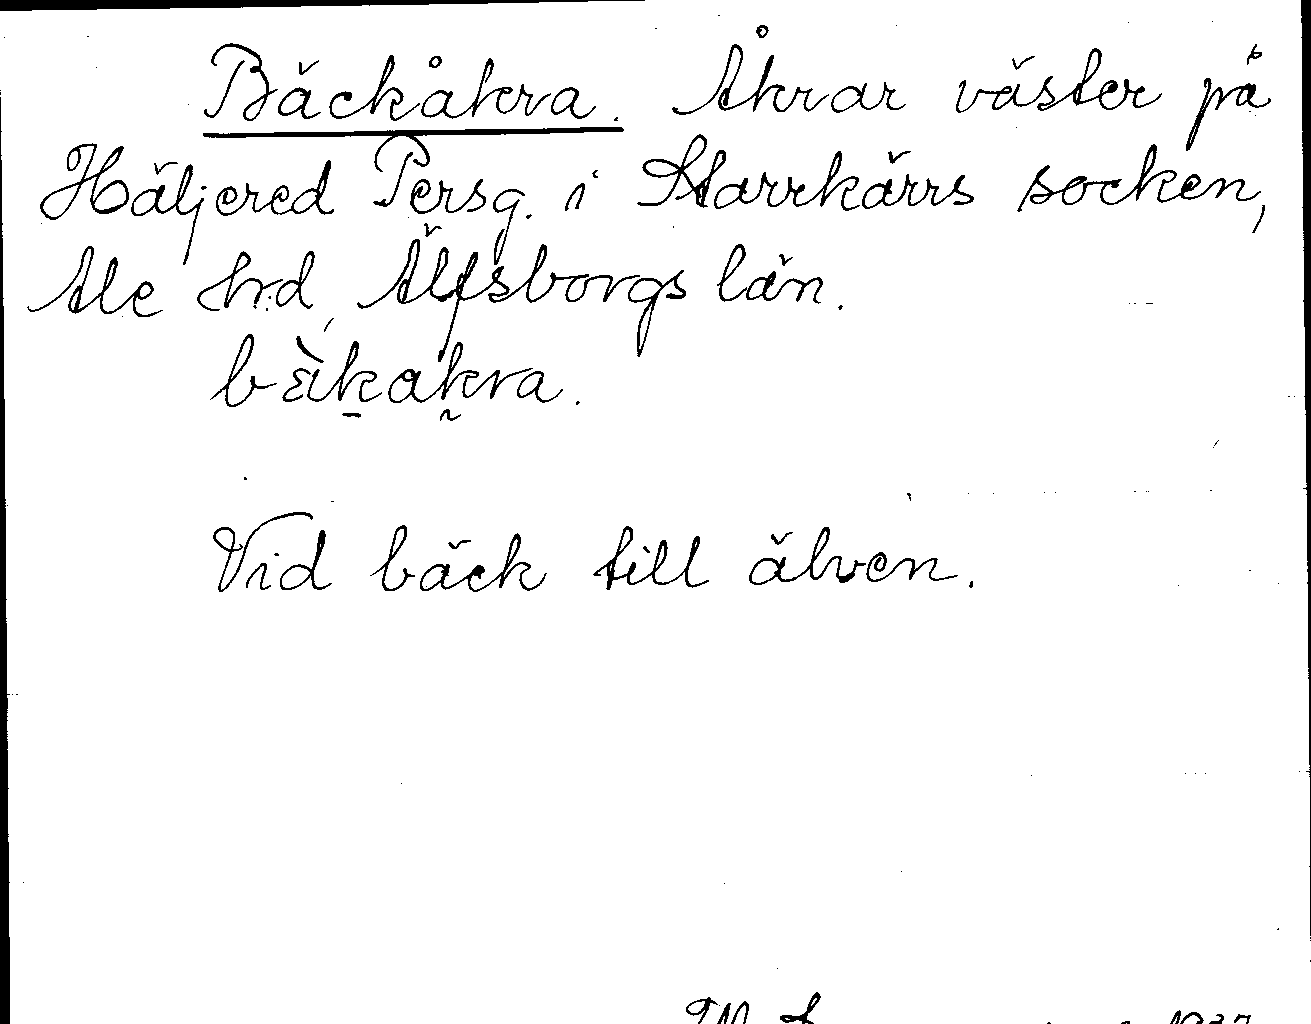 Bäckåkra. Åkrar väster på
Häljered Persg. i Starrkärrs socken,
Ale hrd, Älfsborgs län.
bɛ̀k̠ak̰ra.
Vid bäck till älven.